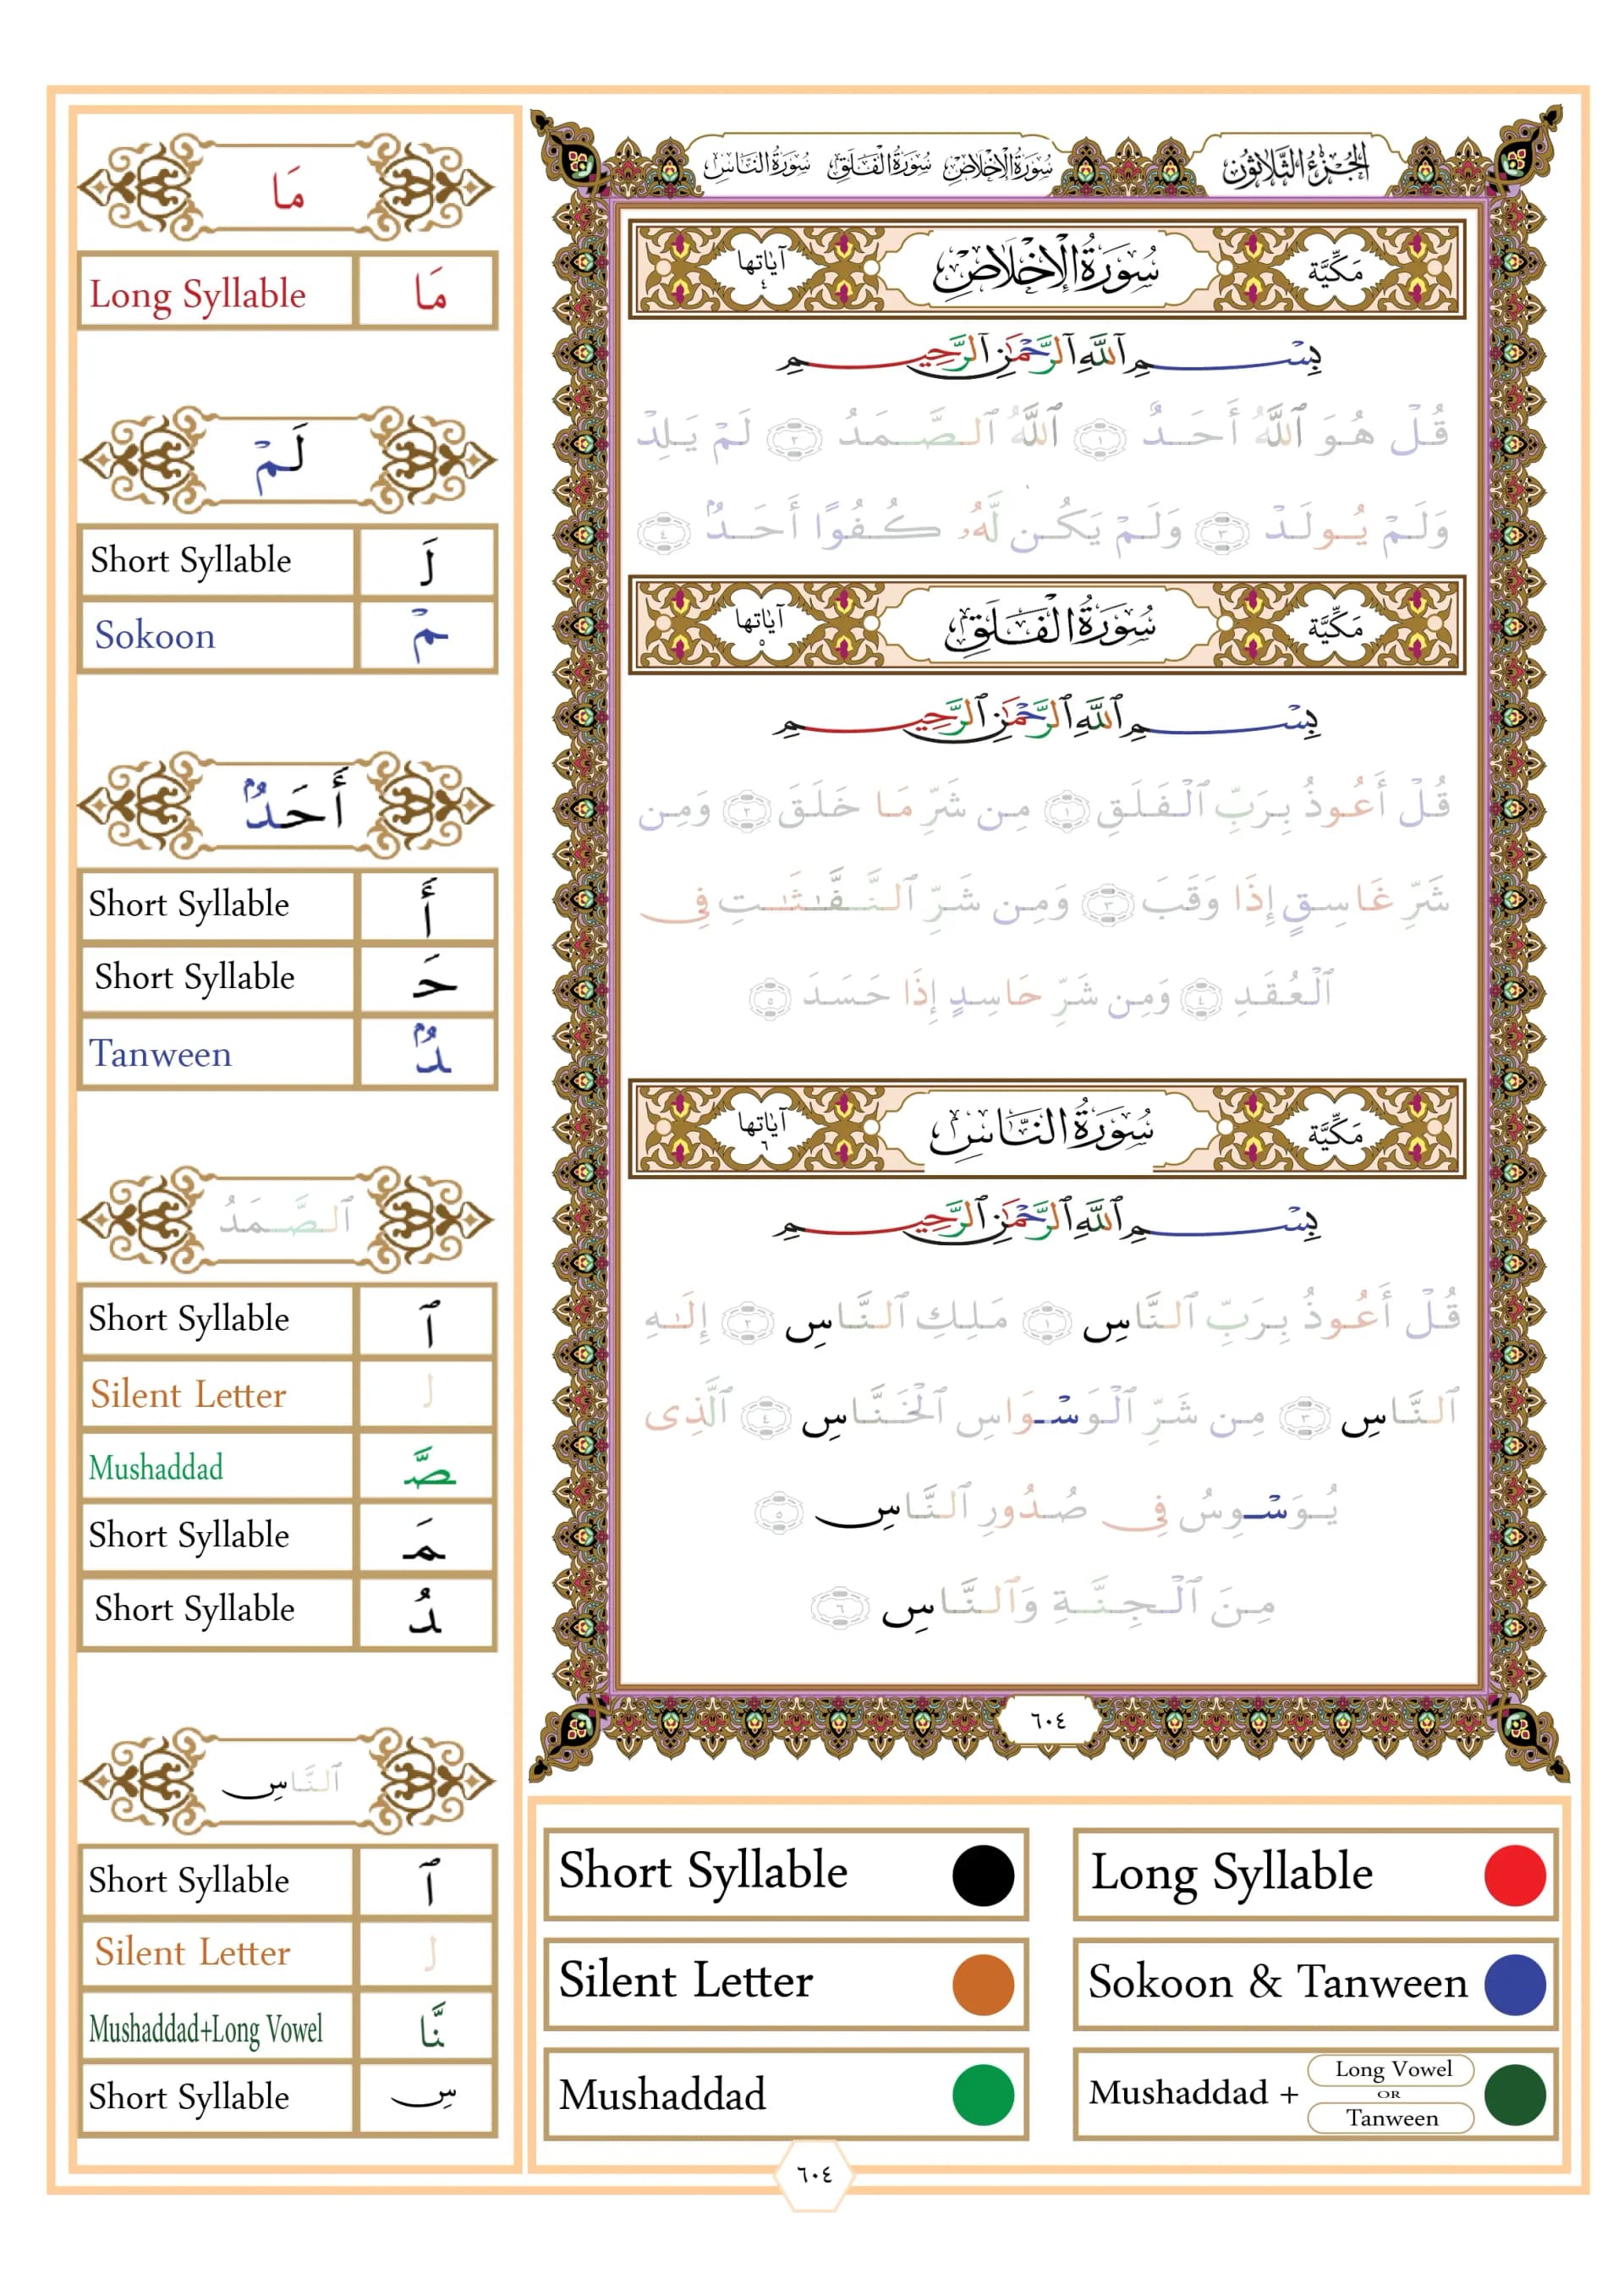 الجزء الثلاثون
سورة الإخلاص سورة الفلق سورة الناس
مَكِّيَّة
سُورَةُ الإِخْلَاصِ
آياتها ٤
بِسْمِ ٱللَّهِ ٱلرَّحْمَٰنِ ٱلرَّحِيمِ
قُلْ هُوَ ٱللَّهُ أَحَدٌ ١ ٱللَّهُ ٱلصَّمَدُ ٢ لَمْ يَلِدْ
وَلَمْ يُولَدْ ٣ وَلَمْ يَكُن لَّهُۥ كُفُوًا أَحَدٌۢ ٤
مَكِّيَّة
سُورَةُ الْفَلَقِ
آياتها ٥
بِسْمِ ٱللَّهِ ٱلرَّحْمَٰنِ ٱلرَّحِيمِ
قُلْ أَعُوذُ بِرَبِّ ٱلْفَلَقِ ١ مِن شَرِّ مَا خَلَقَ ٢ وَمِن
شَرِّ غَاسِقٍ إِذَا وَقَبَ ٣ وَمِن شَرِّ ٱلنَّفَّٰثَٰتِ فِى
ٱلْعُقَدِ ٤ وَمِن شَرِّ حَاسِدٍ إِذَا حَسَدَ ٥
مَكِّيَّة
سُورَةُ النَّاسِ
آياتها ٦
بِسْمِ ٱللَّهِ ٱلرَّحْمَٰنِ ٱلرَّحِيمِ
قُلْ أَعُوذُ بِرَبِّ ٱلنَّاسِ ١ مَلِكِ ٱلنَّاسِ ٢ إِلَٰهِ
ٱلنَّاسِ ٣ مِن شَرِّ ٱلْوَسْوَاسِ ٱلْخَنَّاسِ ٤ ٱلَّذِى
يُوَسْوِسُ فِى صُدُورِ ٱلنَّاسِ ٥
مِنَ ٱلْجِنَّةِ وَٱلنَّاسِ ٦
٦٠٤
مَا
Long Syllable مَا
لَمْ
Short Syllable لَ
Sokoon مْ
أَحَدٌۢ
Short Syllable أَ
Short Syllable حَ
Tanween دٌۢ
ٱلصَّمَدُ
Short Syllable ٱ
Silent Letter ل
Mushaddad صَّ
Short Syllable مَ
Short Syllable دُ
ٱلنَّاسِ
Short Syllable ٱ
Silent Letter ل
Mushaddad+Long Vowel نَّا
Short Syllable سِ
Short Syllable
Long Syllable
Silent Letter
Sokoon & Tanween
Mushaddad
Mushaddad + Long Vowel OR Tanween
٦٠٤